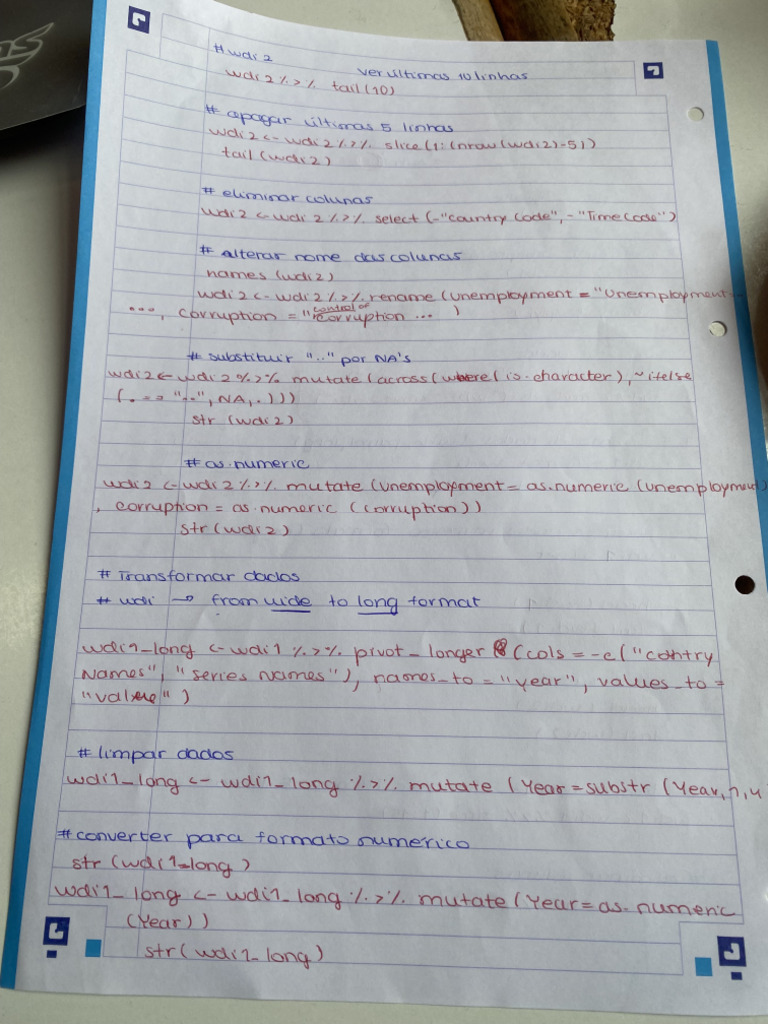 # wdi 2
ver ultimas 10 linhas
wdi 2 %>% tail(10)
# apagar últimas 5 linhas
wdi2 <- wdi2 %>% slice(1:(nrow(wdi2)-5))
tail(wdi2)
# eliminar colunas
wdi2 <- wdi 2 %>% select(-"country Code", -"Time Code")
# alterar nome das colunas
names (wdi2)
wdi2 <- wdi2 %>% rename (unemployment = "unemployment
..., corruption = "control of corruption ... )
# substituir ".." por NA's
wdi2 <- wdi2 %>% mutate (across(where(is.character), ~ ifelse
(. == "..", NA, .)))
str (wdi2)
# as.numeric
wdi2 <- wdi2 %>% mutate (unemployment = as.numeric (unemployment)
, corruption = as.numeric (corruption))
str (wdi2)
# Transformar dados
# wdi → from wide to long format
wdi1_long <- wdi1 %>% pivot_longer (cols = -c("contry
Names", "series Names"), names_to = "year", values_to =
"value")
# limpar dados
wdi1_long <- wdi1_long %>% mutate (Year = substr (Year, 1, 4
# converter para formato numerico
str (wdi1_long)
wdi1_long <- wdi1_long %>% mutate (Year = as.numeric
(Year))
str (wdi1_long)